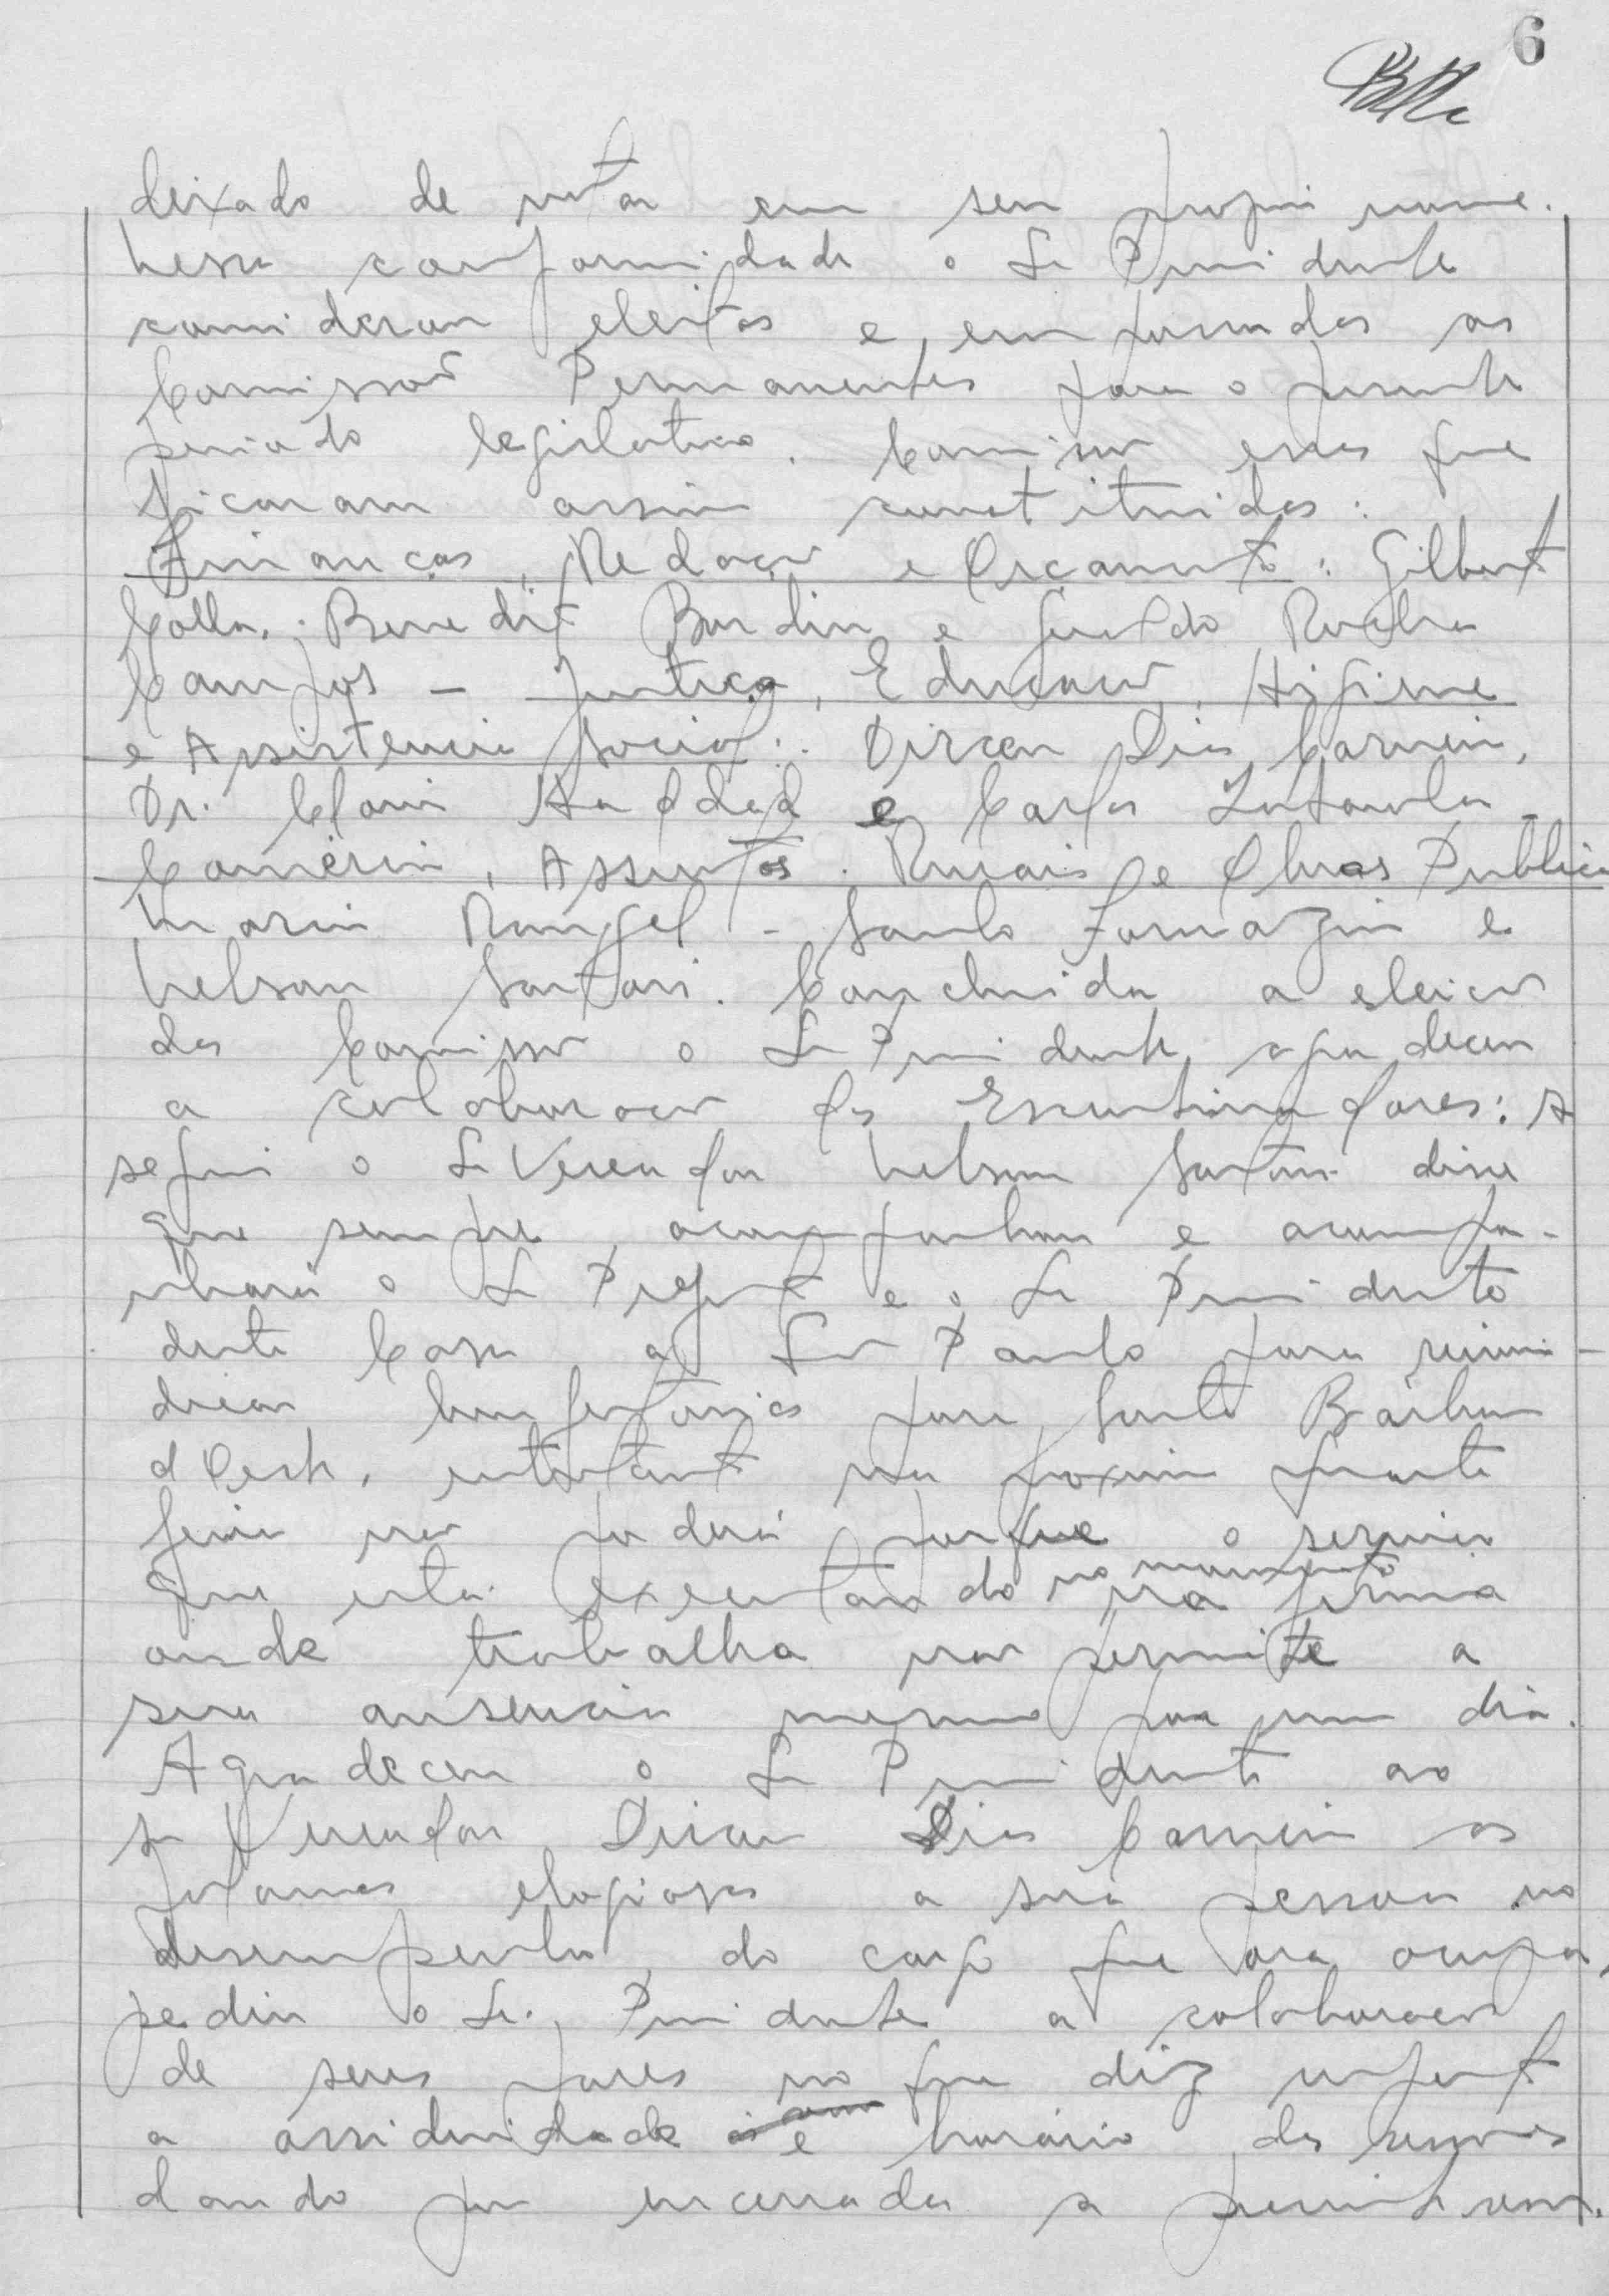 6
deixado de votar em seu propri nome.
Nessa conformidade o Sr Presidente
considerou eleitos e empossados as
Comissões Permanentes para o presente
periodo legislativo. Comissões essas que
ficaram assim constituidas:
Finanças, Redação e Orçamento: Gilberto
Colla, Benedito Bordin e Geraldo Rocha
Campos - Justiça, Educação, Higiene
e Assistencia Social: Dirceu Dias Carneiro,
Dr. Clarin Haddad e Carlos
Comércio, Assuntos Rurais e Obras Publicas
Mario Rangel - Santo Fornazin e
Nelson Sartori. Concluida a eleição
das Comissões o Sr Presidente agradeceu
a colaboração dos Escrutinadores: A
seguir o Sr Vereador Nelson Sartori disse
que sempre acompanhou e acompa-
nhará o Sr Prefeito e o Sr Presidente
desta Casa a São Paulo para reivin-
dicar benfeitorias para Santa Bárbara
d'Oeste, entretanto na proxima quarta
feira não poderá porque o serviço
que esta executando no momento na firma
onde trabalha não permite a
sua ausencia mesmo por um dia.
Agradeceu o Sr Presidente ao
Sr Vereador Dirceu Dias Carneiro as
palavras elogiosas a sua pessoa no
desempenho do cargo que ora ocupa,
pediu o Sr. Presidente a colaboração
de seus pares no que diz respeito
a assiduidade e horário das sessões
dando por encerrada a presente sessão.